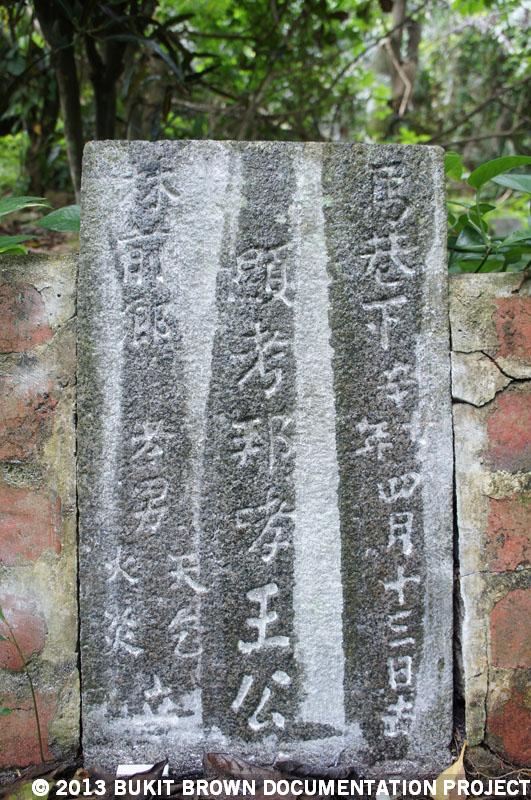 馬巷下
年四月十三日
顯考邦孝王公
孝男
天乞
火炎
立
© 2013 BUKIT BROWN DOCUMENTATION PROJECT